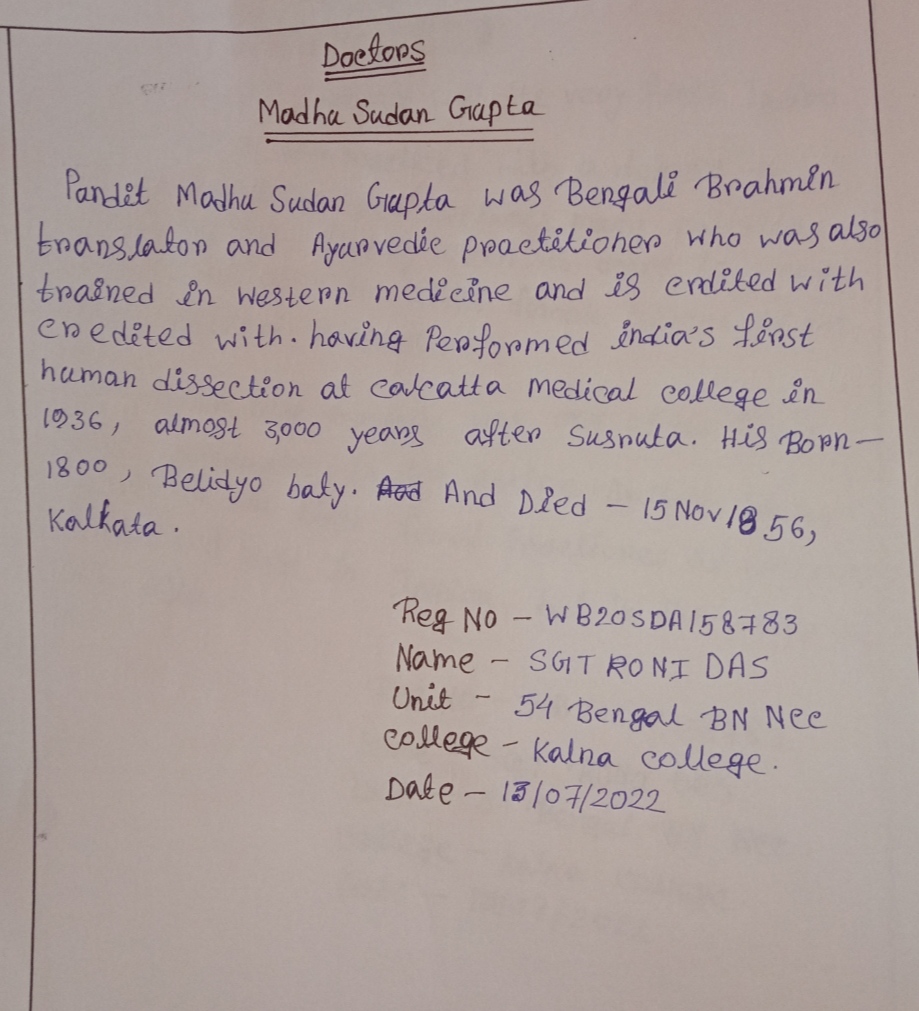 Doctors
Madhu Sudan Gupta
Pandit Madhu Sudan Gupta was Bengali Brahmin
translator and Ayurvedic practitioner who was also
trained in western medicine and is erdited with
credited with. having Performed india's first
human dissection at calcatta medical college in
1936, almost 3,000 years after Susruta. His Born—
1800, Belidyo baty. And Died - 15 Nov 1856,
Kalkata.
Reg No - WB20SDA158783
Name - SGT RONI DAS
Unit - 54 Bengal BN Ncc
college - Kalna college.
Date - 13/07/2022